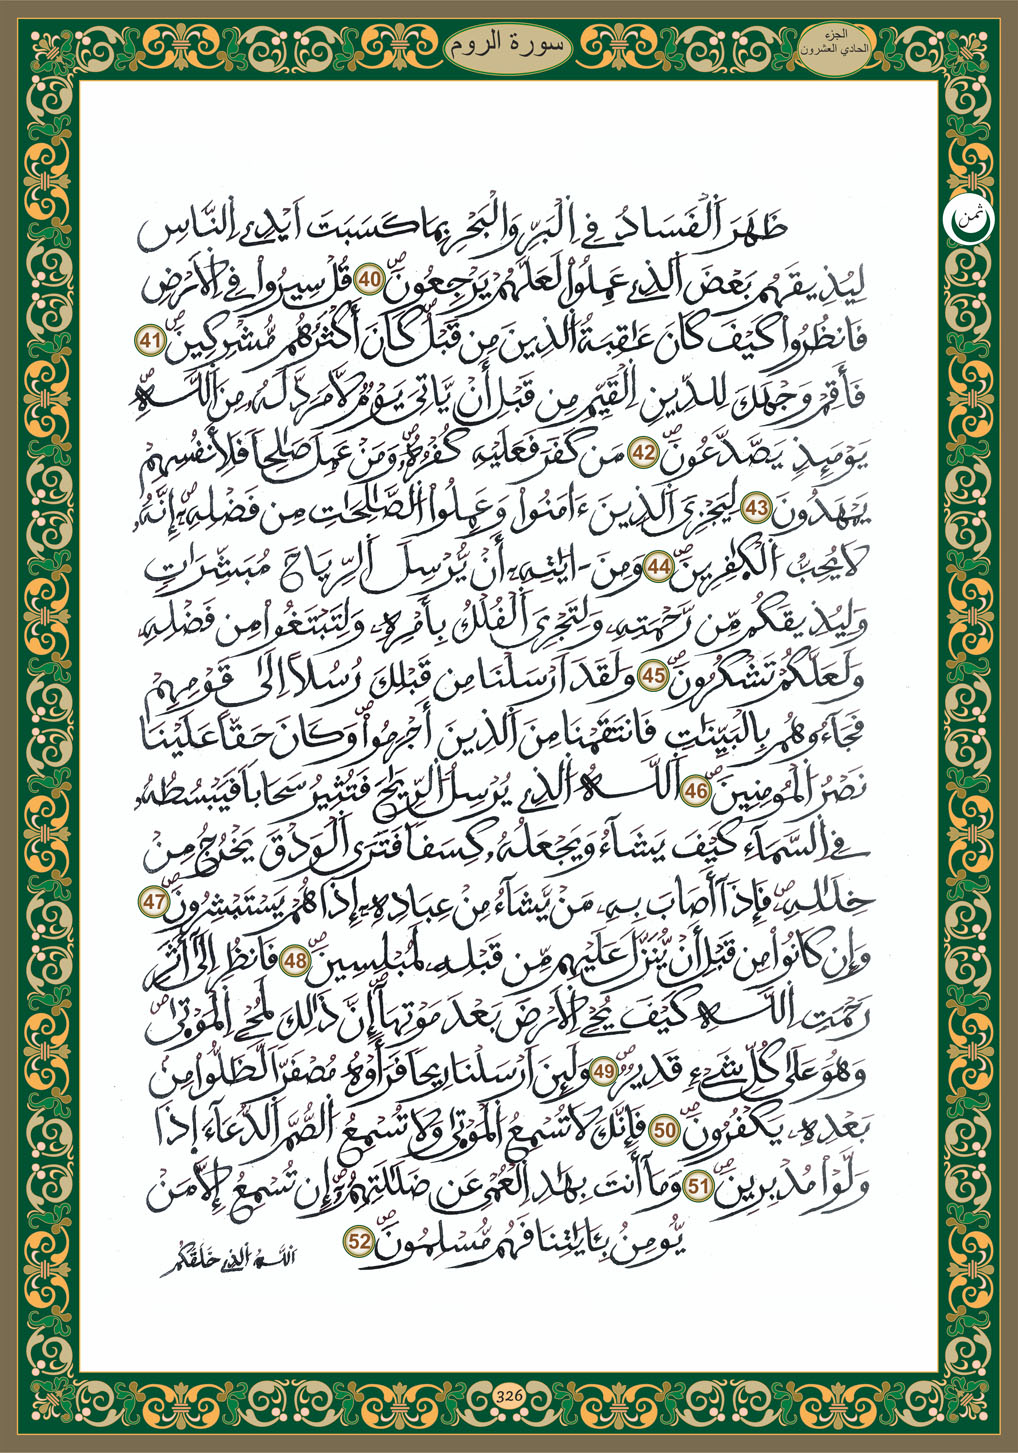 سورة الروم
الجزء
الحادي العشرون
ثمن
ظَهَرَ اَ۬لْفَسَادُ فِے اِ۬لْبَرِّ وَالْبَحْرِ بِمَا كَسَبَتَ اَيْدِے اِ۬لنَّاسِ
لِيُذِيقَهُم بَعْضَ اَ۬لذِے عَمِلُواْ لَعَلَّهُمْ يَرْجِعُونَۖ 40 قُلْ سِيرُواْ فِے اِ۬لَارْضِ
فَانظُرُواْ كَيْفَ كَانَ عَٰقِبَةُ اُ۬لذِينَ مِن قَبْلُ كَانَ أَكْثَرُهُم مُّشْرِكِينَۖ 41
فَأَقِمْ وَجْهَكَ لِلدِّينِ اِ۬لْقَيِّمِ مِن قَبْلِ أَنْ يَّاتِيَ يَوْمٞ لَّا مَرَدَّ لَهُۥ مِنَ اَ۬للَّهِۖ
يَوْمَئِذٖ يَصَّدَّعُونَۖ 42 مَن كَفَرَ فَعَلَيْهِ كُفْرُهُۥۖ وَمَنْ عَمِلَ صَٰلِحاٗ فَلِأَنفُسِهِمْ
يَمْهَدُونَ 43 لِيَجْزِيَ اَ۬لذِينَ ءَامَنُواْ وَعَمِلُواْ اُ۬لصَّٰلِحَٰتِ مِن فَضْلِهِۦٓۖ إِنَّهُۥ
لَا يُحِبُّ اُ۬لْكَٰفِرِينَۖ 44 وَمِنَ اٰيَٰتِهِۦٓ أَنْ يُّرْسِلَ اَ۬لرِّيَاحَ مُبَشِّرَٰتٖ
وَلِيُذِيقَكُم مِّن رَّحْمَتِهِۦ وَلِتَجْرِيَ اَ۬لْفُلْكُ بِأَمْرِهِۦ وَلِتَبْتَغُواْ مِن فَضْلِهِۦ
وَلَعَلَّكُمْ تَشْكُرُونَۖ 45 وَلَقَدَ اَرْسَلْنَا مِن قَبْلِكَ رُسُلاً اِلَىٰ قَوْمِهِمْ
فَجَآءُوهُم بِالْبَيِّنَٰتِ فَانتَقَمْنَا مِنَ اَ۬لذِينَ أَجْرَمُواْۖ وَكَانَ حَقّاً عَلَيْنَا
نَصْرُ اُ۬لْمُومِنِينَۖ 46 اَ۬للَّهُ اُ۬لذِے يُرْسِلُ اُ۬لرِّيَٰحَ فَتُثِيرُ سَحَاباٗ فَيَبْسُطُهُۥ
فِے اِ۬لسَّمَآءِ كَيْفَ يَشَآءُ وَيَجْعَلُهُۥ كِسَفاٗ فَتَرَى اَ۬لْوَدْقَ يَخْرُجُ مِنْ
خِلَٰلِهِۦۖ فَإِذَآ أَصَابَ بِهِۦ مَنْ يَّشَآءُ مِنْ عِبَادِهِۦٓ إِذَا هُمْ يَسْتَبْشِرُونَۖ 47
وَإِن كَانُواْ مِن قَبْلِ أَنْ يُّنَزَّلَ عَلَيْهِم مِّن قَبْلِهِۦ لَمُبْلِسِينَۖ 48 فَانظُرِ اِلَىٰٓ أَثَرِ
رَحْمَتِ اِ۬للَّهِ كَيْفَ يُحْيِ اِ۬لَارْضَ بَعْدَ مَوْتِهَآۖ إِنَّ ذَٰلِكَ لَمُحْيِ اِ۬لْمَوْتَىٰۖ
وَهُوَ عَلَىٰ كُلِّ شَےْءٖ قَدِيرٞۖ 49 وَلَئِنَ اَرْسَلْنَا رِيحاٗ فَرَأَوْهُ مُصْفَرّاٗ لَّظَلُّواْ مِنۢ
بَعْدِهِۦ يَكْفُرُونَۖ 50 فَإِنَّكَ لَا تُسْمِعُ اُ۬لْمَوْتَىٰ وَلَا تُسْمِعُ اُ۬لصُّمَّ اَ۬لدُّعَآءَ اِذَا
وَلَّوْاْ مُدْبِرِينَۖ 51 وَمَآ أَنتَ بِهَٰدِ اِ۬لْعُمْيِ عَن ضَلَٰلَتِهِمُۥٓۖ إِن تُسْمِعُ إِلَّا مَنْ
يُّومِنُ بِـَٔايَٰتِنَا فَهُم مُّسْلِمُونَۖ 52
اَ۬للَّهُ اُ۬لذِے خَلَقَكُم
326